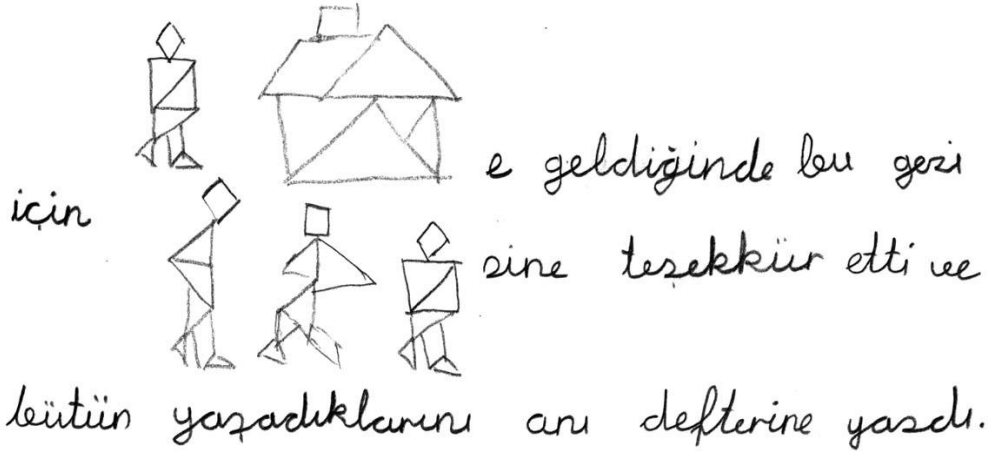 e geldiğinde bu gezi
için
sine teşekkür etti ve
bütün yaşadıklarını anı defterine yazdı.